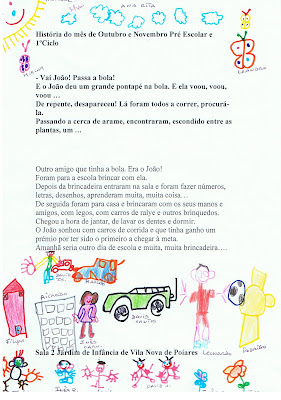 ANA RITA
História do mês de Outubro e Novembro Pré Escolar e
1ºCiclo
LEANDRO
- Vai João! Passa a bola!
E o João deu um grande pontapé na bola. E ela voou, voou,
voou …
De repente, desapareceu! Lá foram todos a correr, procurá-
la.
Passando a cerca de arame, encontraram, escondido entre as
plantas, um …
Outro amigo que tinha a bola. Era o João!
Foram para a escola brincar com ela.
Depois da brincadeira entraram na sala e foram fazer números,
letras, desenhos, aprenderam muita, muita coisa…
De seguida foram para casa e brincaram com os seus manos e
amigos, com legos, com carros de ralye e outros brinquedos.
Chegou a hora de jantar, de lavar os dentes e dormir.
O João sonhou com carros de corrida e que tinha ganho um
prémio por ter sido o primeiro a chegar à meta.
Amanhã seria outro dia de escola e muita, muita brincadeira….
Sala 2 Jardim de Infância de Vila Nova de Poiares